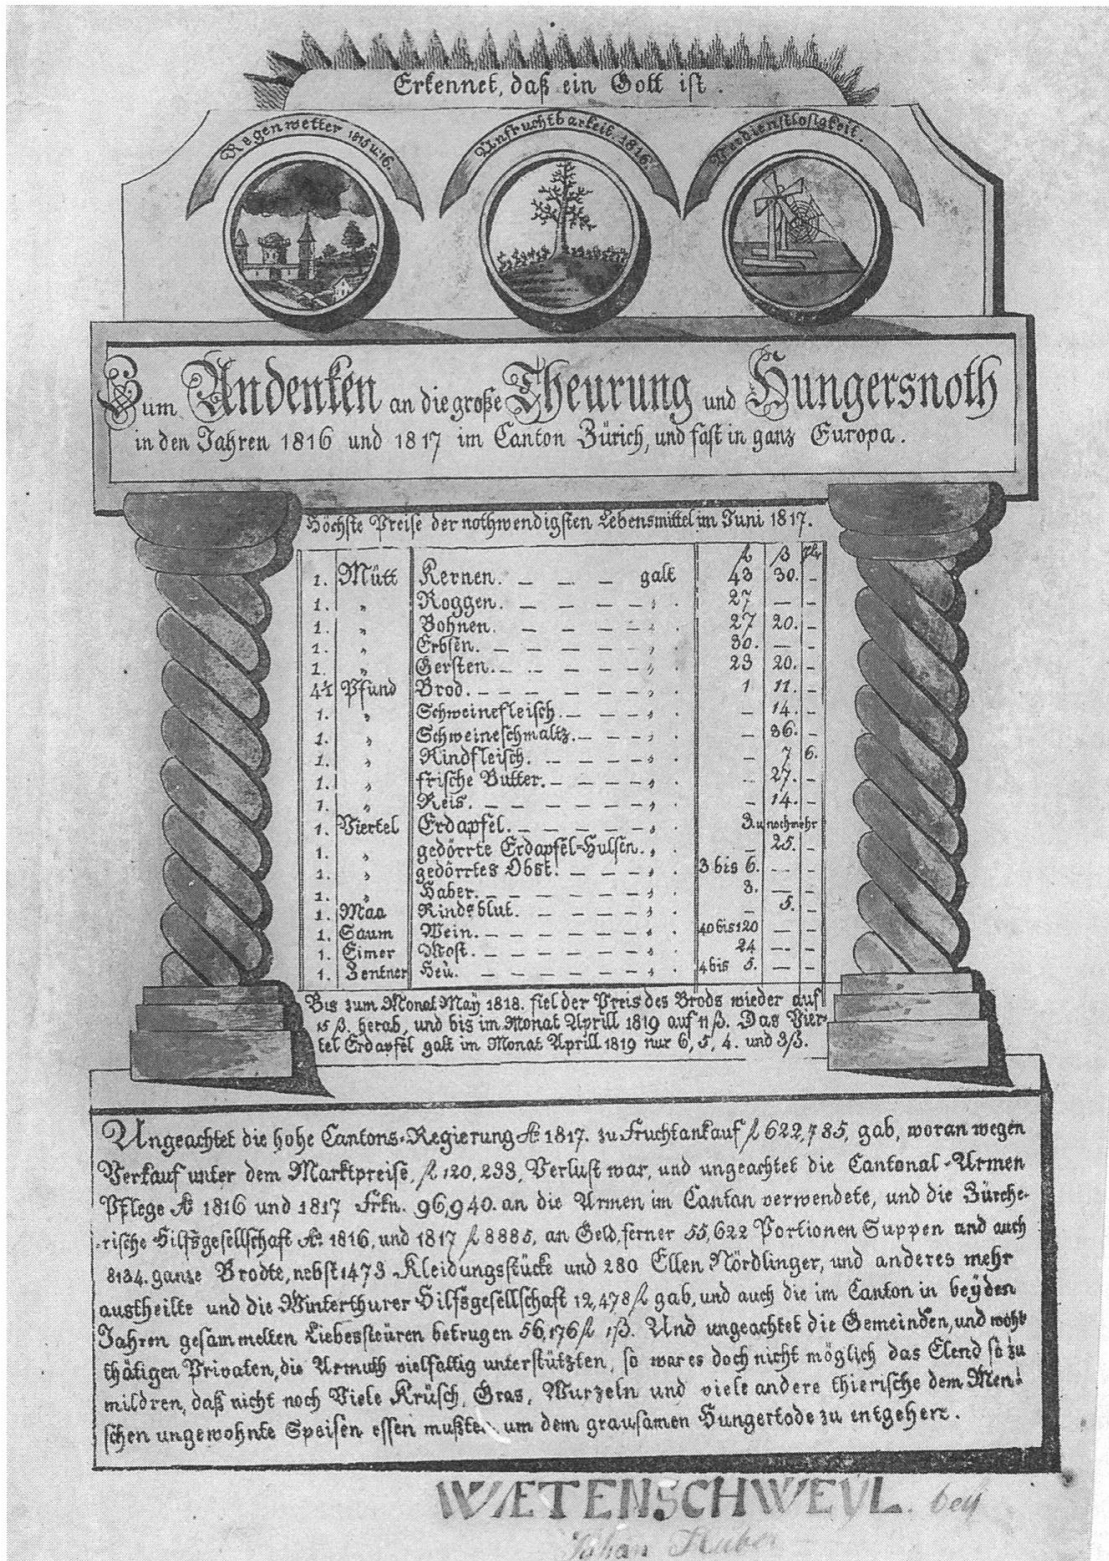 Erkennet, daß ein Gott ist.
Regenwetter 1815 u. 16.
Unfruchtbarkeit. 1816.
Verdienstlosigkeit.
Zum Andenken an die große Theurung und Hungersnoth
in den Jahren 1816 und 1817 im Canton Zürich, und fast in ganz Europa.
Höchste Preise der nothwendigsten Lebensmittel im Juni 1817.
fl ß hlr
1. Mütt Kernen. — — — galt 43 30. —
1. „ Roggen. — — — — „ . 27 — —
1. „ Bohnen. — — — — „ . 27 20. —
1. „ Erbsen. — — — — „ . 30. — —
1. „ Gersten. — — — — „ . 23 20. —
4½ Pfund Brod. — — — — „ . 1 11. —
1. „ Schweinefleisch. — — — „ . — 14. —
1. „ Schweineschmaltz. — — — „ . — 36. —
1. „ Rindfleisch. — — — — „ . — 7 6.
1. „ frische Butter. — — — — „ . — 27. —
1. „ Reis. — — — — — „ . — 14. —
1. Viertel Erdapfel. — — — — „ . 3. u noch mehr
1. „ gedörrte Erdapfel-Hulsen. „ . — 25. —
1. „ gedörrtes Obst. — — — „ . 3 bis 6. — —
1. „ Haber. — — — — „ . 3. — —
1. Maa Rindsblut. — — — — „ . — 5. —
1. Saum Wein. — — — — — „ . 40 bis 120 — —
1. Eimer Most. — — — — — „ . 24 — —
1. Zentner Heü. — — — — — „ . 4 bis 5. — —
Bis zum Monat Maÿ 1818. fiel der Preis des Brods wieder auf
15 ß. herab, und bis im Monat Aprill 1819 auf 11 ß. Das Vier-
tel Erdapfel galt im Monat Aprill 1819 nur 6, 5, 4. und 3 ß.
Ungeachtet die hohe Cantons-Regierung Ao 1817. zu Fruchtankauf fl 622,785, gab, woran wegen
Verkauf unter dem Marktpreise, fl 120,233, Verlust war, und ungeachtet die Cantonal-Armen
Pflege Ao 1816 und 1817 Frkn. 96,940. an die Armen im Cantan verwendete, und die Zürche-
rische Hilfsgesellschaft Ao 1816, und 1817 fl 8885, an Geld, ferner 55,622 Portionen Suppen and auch
8134. ganze Brodte, nebst 1473 Kleidungsstücke und 280 Ellen Nördlinger, und anderes mehr
austheilte und die Winterthurer Hilfsgesellschaft 12,478 fl gab, und auch die im Canton in beÿden
Jahren gesammelten Liebessteüren betrugen 56,176 fl 1 ß. Und ungeachtet die Gemeinden, und wohl
thätigen Privaten, die Armuth vielfältig unterstützten, so war es doch nicht möglich das Elend so zu
mildren, daß nicht noch Viele Krüsch, Gras, Wurzeln und viele andere thierische dem Men-
schen ungewohnte Speisen essen mußten um dem grausamen Hungertode zu entgehen.
WÆTENSCHWEYL. beÿ
Johan Huber